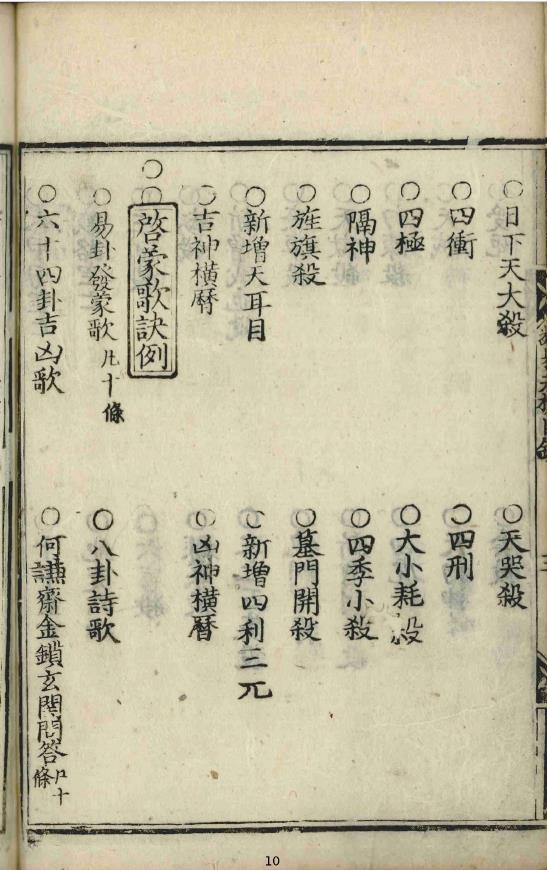 ○日下天大殺
○天哭殺
○四衝
○四刑
○四極
○大小耗殺
○隔神
○四季小殺
○旌旗殺
○墓門開殺
○新增天耳目
○新增四利三兀
○吉神橫曆
○凶神橫曆
○○啓蒙歌訣例
○易卦發蒙歌凡十條
○八卦詩歌
○六十四卦吉凶歌
○何謙齋金鎖玄関問答凡十條
10